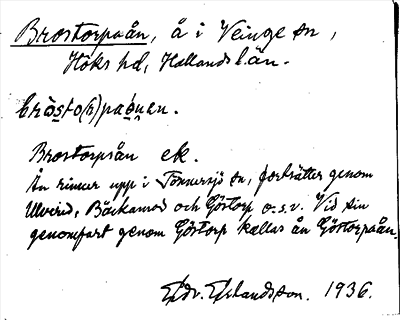 Brostorpaån, å i Veinge sn,
Höks hd, Hallands län.
Brostorpsån ek.
Ån rinner upp i Tönnersjö sn, fortsätter genom
Ulvered, Bäckamod och Göstorp o.s.v. Vid sin
genomfart genom Göstorp kallas ån Göstorpaån.
Edv. Erlandsson. 1936.